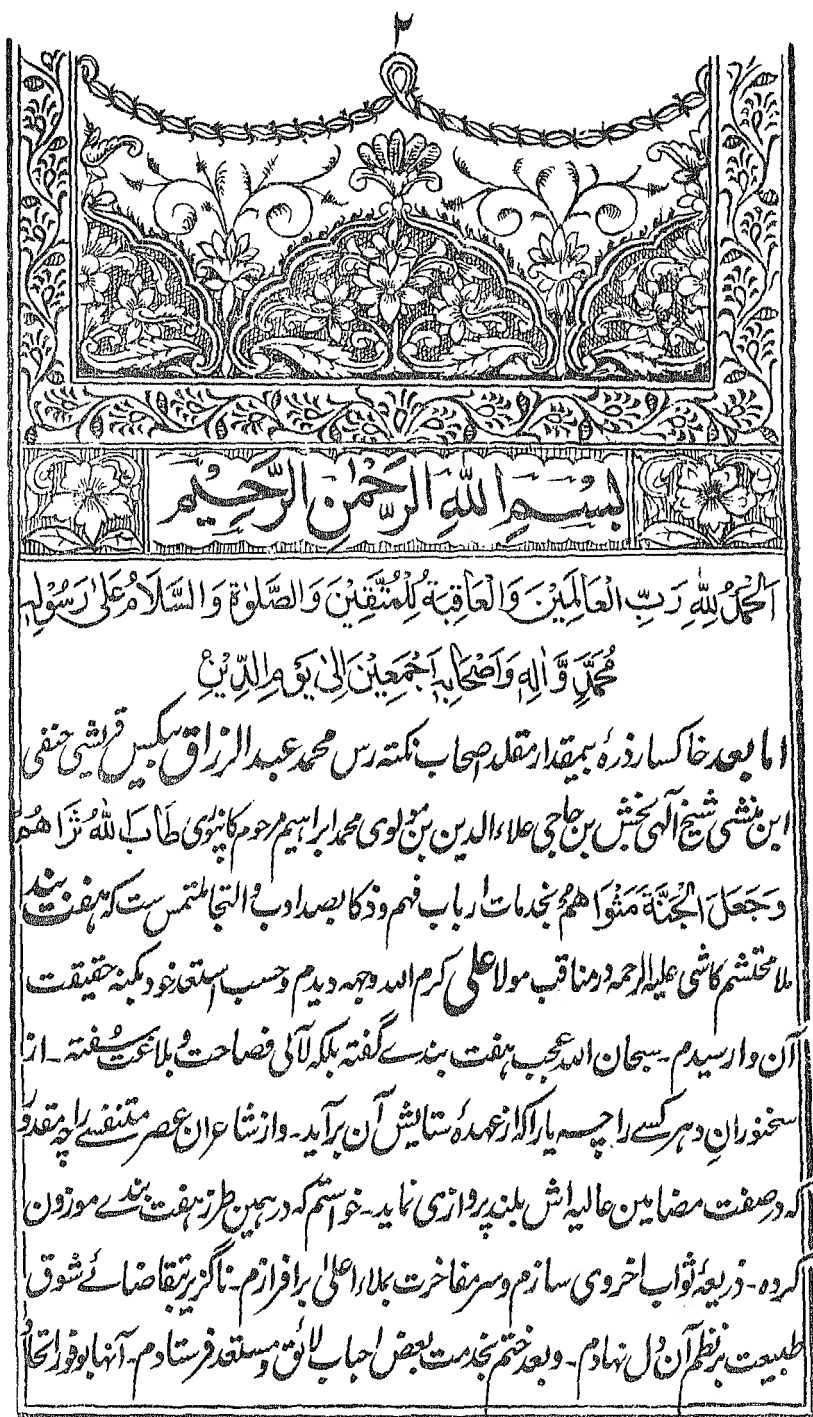 ۲
بِسْمِ اللهِ الرَّحْمٰنِ الرَّحِيْمِ
اَلْحَمْدُ لِلّٰهِ رَبِّ الْعَالَمِيْنَ وَالْعَاقِبَةُ لِلْمُتَّقِيْنَ وَالصَّلٰوةُ وَالسَّلَامُ عَلٰى رَسُوْلِهٖ
مُحَمَّدٍ وَّاٰلِهٖ وَاَصْحَابِهٖ اَجْمَعِيْنَ اِلٰى يَوْمِ الدِّيْنِ
اما بعد خاکسار ذرهٔ بیمقدار مقلد اصحاب نکته رس محمد عبدالرزاق بیکس قریشی حنفی
ابن منشی شیخ الٰهی بخش بن حاجی علاءالدین بن مولوی محمد ابراهیم مرحوم کانپوری طَابَ اللهُ ثَرَاهُمْ
وَجَعَلَ الْجَنَّةَ مَثْوَاهُمْ بخدمات ارباب فهم و ذکا بصد ادب و التجا ملتمس ست که هفت بند
ملا محتشم کاشی علیه الرحمه در مناقب مولا علی کرم الله وجهه دیدم و حسب استعداد خود بکنه حقیقت
آن وارسیدم۔ سبحان الله عجب هفت بندے گفته بلکه لآلی فصاحت و بلاغت سُفته۔ از
سخنورانِ دهر کسے را چه یارا که از عهدهٔ ستایش آن برآید۔ و از شاعران عصر متنفسے را چه مقدور
که در صفت مضامین عالیه اش بلند پروازی نماید۔ خواستم که در همین طرز هفت بندے موزون
کرده۔ ذریعهٔ ثواب اخروی سازم و سر مفاخرت بملاء اعلیٰ برافرازم۔ ناگزیر بتقاضائے شوق
طبیعت بر نظم آن دل نهادم۔ و بعد ختم بخدمت بعض احباب لائق و مستعد فرستادم۔ آنها بوفور اتحاد